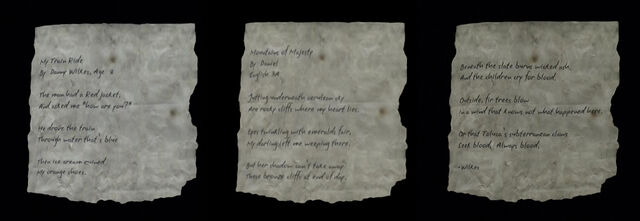 My Train Ride
By Danny Wilkes, Age 8
The man had a Red jacket,
And asked me "how are you?"
He drove the train
Through water that's blue
Then ice cream ruined
My orange shoes.
Mountains of Majesty
By Daniel
English 3A
Jutting underneath cerulean sky
Are rocky cliffs where my heart lies.
Eyes twinkling with emeralds fair,
My darling left me weeping there.
But her shadow can't take away
These bronze cliffs at end of day.
Beneath the slate burns wicked ash,
And the children cry for blood.
Outside, fir trees blow
In a wind that knows not what happened here.
Oh that Toluca's subterranean claws
Seek blood, Always blood.
-Wilkes